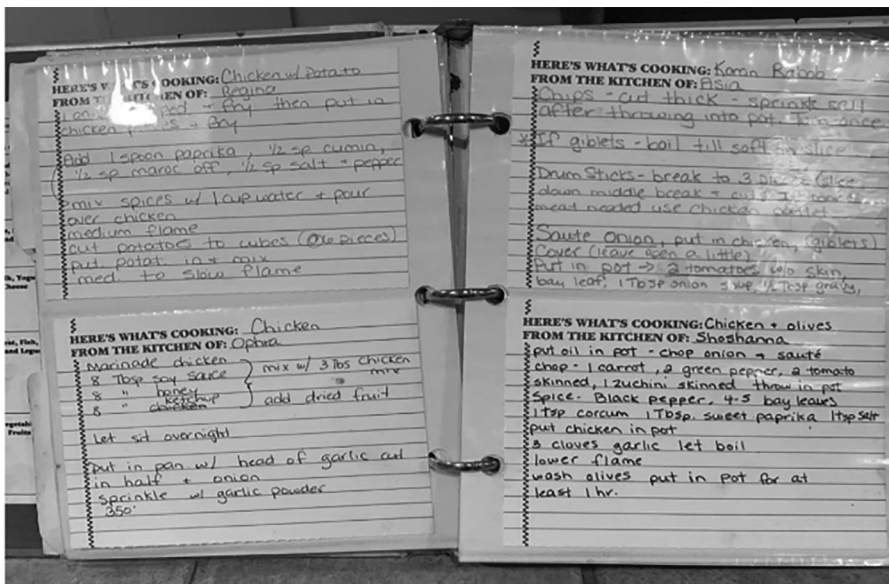 HERE'S WHAT'S COOKING: Chicken w/ Potato
FROM THE KITCHEN OF: Regina
1 onion + fry then put in
chicken + fry
Add 1 spoon paprika, 1/2 sp cumin,
1/2 sp maroc off, 1/2 sp salt + pepper
mix spices w/ 1 cup water + pour
over chicken
medium flame
cut potatoes to cubes (6 pieces)
put potat. in + mix
med. to slow flame
HERE'S WHAT'S COOKING: Chicken
FROM THE KITCHEN OF: Ophra
Marinade chicken
8 Tbsp soy sauce
8 " honey
8 " ketchup
8 " chicken
mix w/ 3 Tbs chicken
mix
add dried fruit
Let sit overnight
put in pan w/ head of garlic cut
in half + onion
sprinkle w/ garlic powder
350°
HERE'S WHAT'S COOKING:
FROM THE KITCHEN OF: Asia
Chips - cut thick - sprinkle salt
after throwing into pot. Turn once
*If giblets - boil till soft slice
Drum Sticks - break to 3 (slice
down middle break +
meat needed use chicken
Saute Onion, put in chicken, (giblets)
Cover (leave open a little)
Put in pot → 2 tomatoes w/o skin,
bay leaf, 1 Tbsp onion soup, 1/2 Tbsp gravy,
HERE'S WHAT'S COOKING: Chicken + olives
FROM THE KITCHEN OF: Shoshanna
put oil in pot - chop onion + sauté
chop - 1 carrot, 2 green pepper, 2 tomato
skinned, 1 zuchini skinned throw in pot
Spice - Black pepper, 4-5 bay leaves
1 tsp corcum 1 Tbsp. sweet paprika 1 tsp salt
put chicken in pot
3 cloves garlic let boil
lower flame
wash olives put in pot for at
least 1 hr.